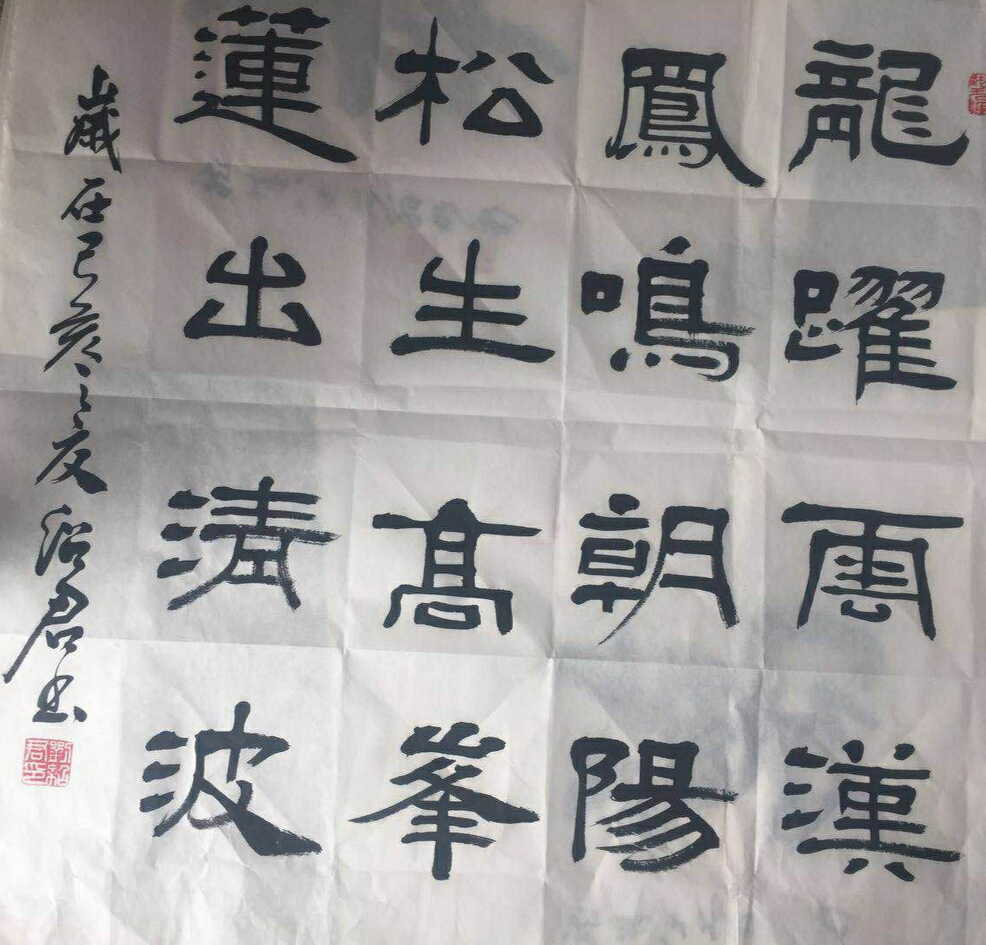 龍躍雲漢
鳳鳴朝陽
松生高峯
蓮出清波
歲在己亥之夏绍君书